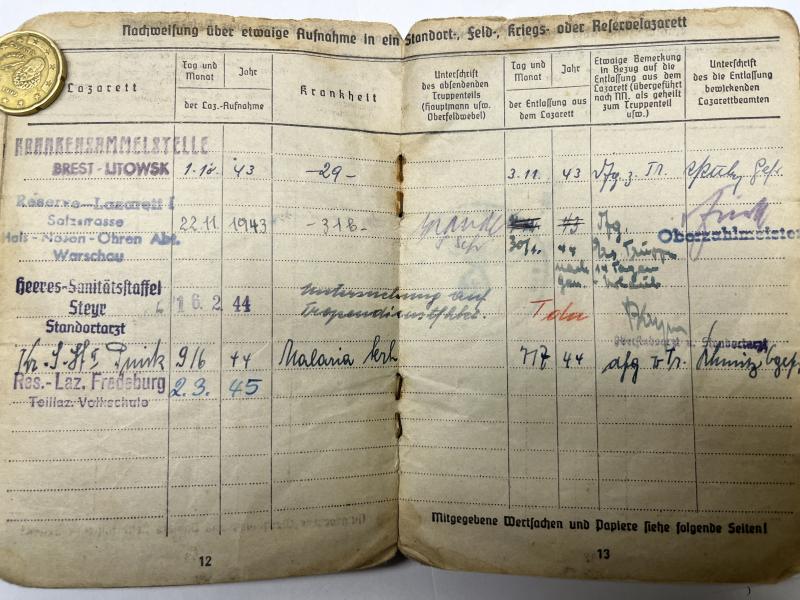 Nachweisung über etwaige Aufnahme in ein Standort-, Feld-, Kriegs- oder Reservelazarett
Lazarett
Tag und Monat
Jahr
der Laz.-Aufnahme
Krankheit
Unterschrift
des absendenden
Truppenteils
(Hauptmann usw.
Oberfeldwebel)
Tag und
Monat
Jahr
der Entlassung aus
dem Lazarett
Etwaige Bemerkung
in Bezug auf die
Entlassung aus dem
Lazarett (übergeführt
nach NN. als geheilt
zum Truppenteil
usw.)
Unterschrift
des die Entlassung
bewirkenden
Lazarettbeamten
KRANKENSAMMELSTELLE
BREST-LITOWSK 1.10. 43 -29- 3.11. 43 dfg. z. Tr.
Reserve-Lazarett I
Salzstrasse 22.11. 1943 -31B-
Hals-Nasen-Ohren Abt.
Oberzahlmeister
Warschau 44
nach 14 Tagen
Heeres-Sanitätsstaffel
Steyr 16.2. 44 Untersuchung auf
Standortarzt
Oberstabsarzt u. Standortarzt
9/6 44 Malaria 7/7 44 dfg z. Tr. Schmitz
Res.-Laz. Fredeburg 2.3. 45
Teillaz. Volkschule
Mitgegebene Wertsachen und Papiere siehe folgende Seiten!
12
13